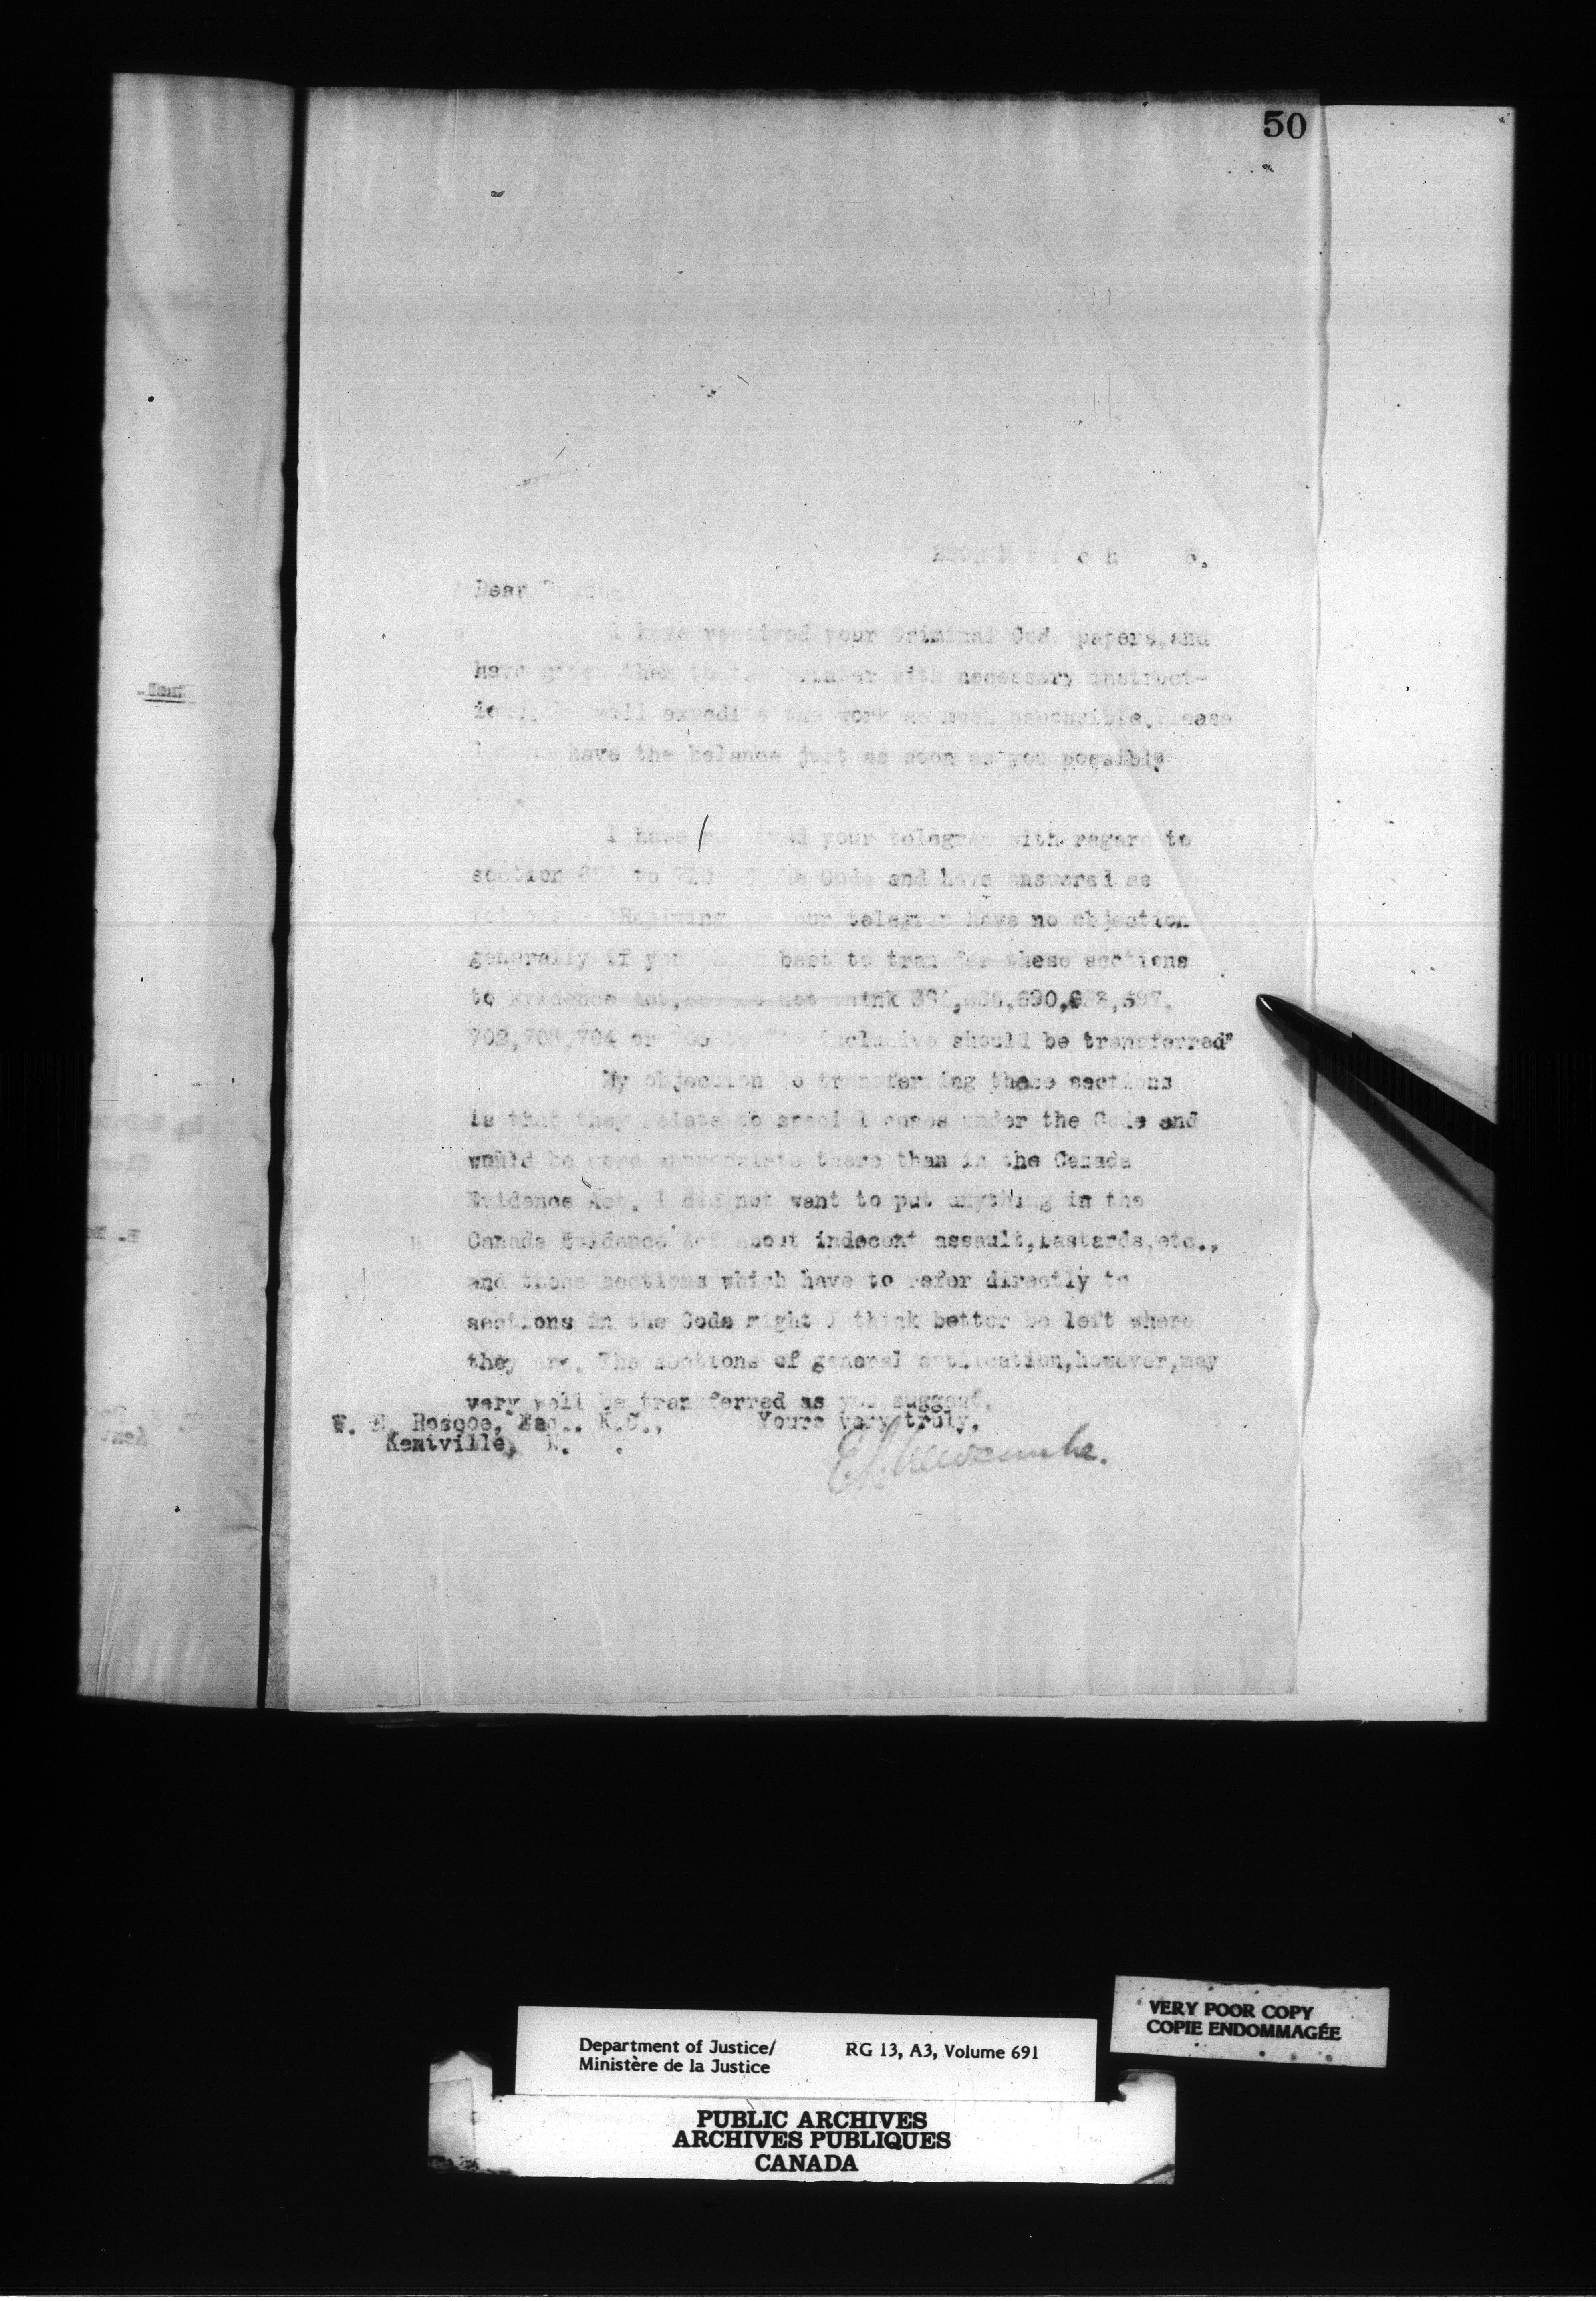 50
Dear
I have received your Criminal Code papers, and
have given them to the printer with necessary instruct-
will expedite the work as much as possible. Please
have the balance just as soon as you possibly
I have your telegram with regard to
section to 710 Code and have answered as
"Replying your telegram have no objection
generally if you best to transfer these sections
to Evidence Act, not think 690,
702, 703, 704 or inclusive should be transferred"
My objection to transferring these sections
is that they relate to special cases under the Code and
would be more appropriate there than in the Canada
Evidence Act. I did not want to put anything in the
Canada Evidence Act about indecent assault, bastards, etc.,
and those sections which have to refer directly to
sections in the Code might I think better be left where
they are. The sections of general application, however, may
very well be transferred as you suggest.
W. E. Roscoe, Esq., K.C., Yours very truly,
Kentville, N.
E.L. Newcombe.
VERY POOR COPY
COPIE ENDOMMAGÉE
Department of Justice/ RG 13, A3, Volume 691
Ministère de la Justice
PUBLIC ARCHIVES
ARCHIVES PUBLIQUES
CANADA